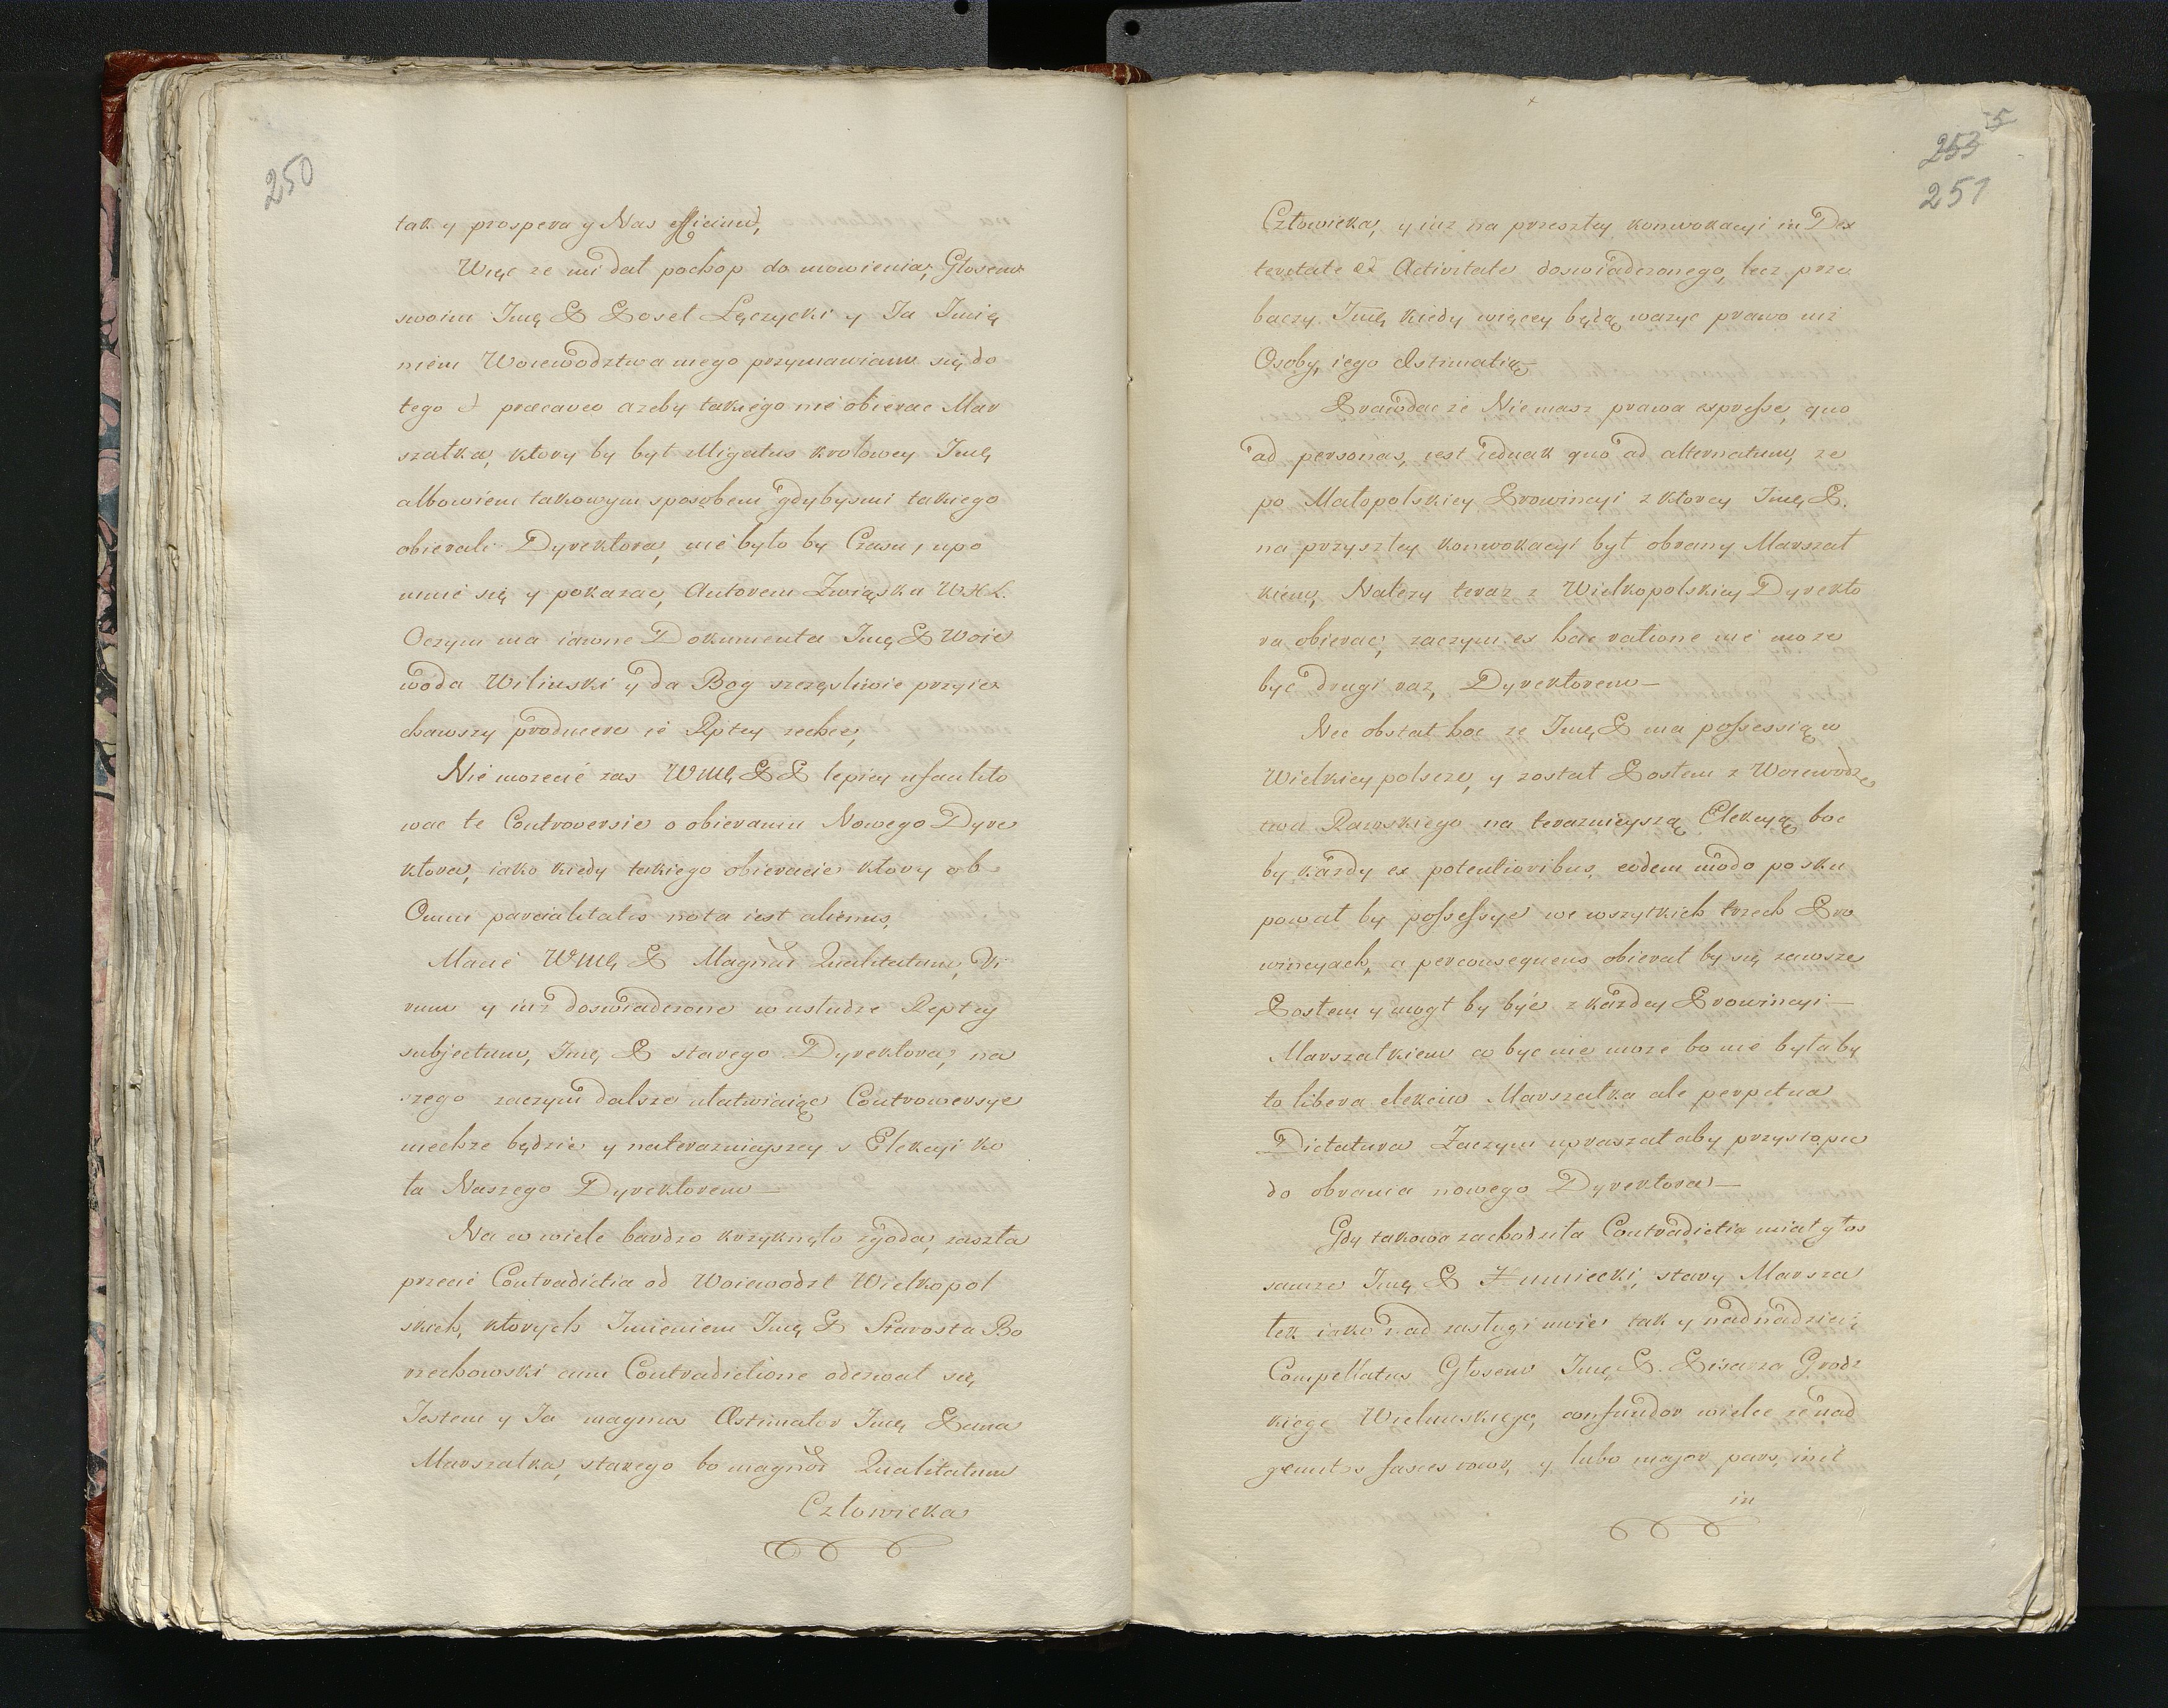 250
tak y prospera y Nas efficiunt,
Więc ze mi dał pochop do mowienia, Głosem
swoim Jmę P Poseł Łęczycki y Ja Imię
niem Woiewodztwa mego przymawiam się do
tego et praecaveo azeby takiego nie obierac Mar
szałka, ktory by był obligatus krolowey Jmę
albowiem takowym sposobem gdybysmi takiego
obierali Dyrektora, nie było by Czasu, upo
mnić się y pokazać, Autorem Związku WXL.
Oczym ma iawne Dokumenta Jmę P Woie
woda Wilinski y da Bog szczęsliwie przyie
chawszy producere ie Rptey zechce,
Nie mozecie zas WMę PP lepiey usaulito
wac te Controversie o obieraniu Nowego Dyre
ktora, iako kiedy takiego obieracie ktory ab
Omni parcialitatis nota iest alienus,
Macie WMę P Magnar Qualitatum, Vi
rum y iuz doswiadczone w usłudze Reptey
subjectum, Jmę P starego Dyrektora, na
czego zaczym dalsze ułatwiaiąc Controwersye
niechze będzie y naterazniejszey s Elekcyi Ko
ła Naszego Dyrektorem—
Na co wiele bardzo krzyknęło zgoda, zaszła
przecie Contradictia od Woiewodzt Wielkopol
skich, ktorych Imieniem Jmę P Starosta Bo
rzechowski cum Contradictione odezwał się,
Jestem y Ja magnus Æstimator Jmę Pana
Marszałka, starego bo magnar Qualitatum
Człowieka
253
251
Człowieka, y iuz na przeszłey konwokacyi in Dex
teritate et Activitate doswiadczonego, lecz prze
baczy Jmę kiedy więcey będą wazyc prawo niz
Osoby, iego Æstimatią—
Prawdac ze Niemasz prawa expresse, quo
ad personas, iest iednak quo ad alternatum, ze
po Małopolskiey Prowincyi z ktorey Jmę P.
na przyszłey konwokacyi był obrany Marszał
kiem, Nalezy teraz z Wielkopolskiey Dyrekto
ra obierac, zaczym ex hac ratione nie moze
być drugi raz, Dyrektorem—
Nec obstat hoc ze Jmę P ma possessią w
Wielkiey polszcze, y został Posłem z Woiewodz
twa Rawskiego na terazniejszą Elekcyą boc
by kazdy ex potentioribus, eodem modo posku
pował by possessye we wszytkich trzech Pro
wincyach, a perconsequens obierał by się zawsze
Posłem y mogł by być z kazdey Prowincyi—
Marszałkiem co byc nie moze bo nie była by
to libera elekcia Marszałka ale perpetua
Dictatura Zaczym upraszał aby przystopic
do obrania nowego Dyrektora—
Gdy takowa zachodziła Contradictia miał głos
samze Jmę P Humiecki, stary Marsza
łek iako nad zasługi moie tak y nad nadzieię
Compellatus Głosem Jmę P. Pisarza Grodz
kiego Wielunskiego, confundor wielce ze nad
major pars, init
in